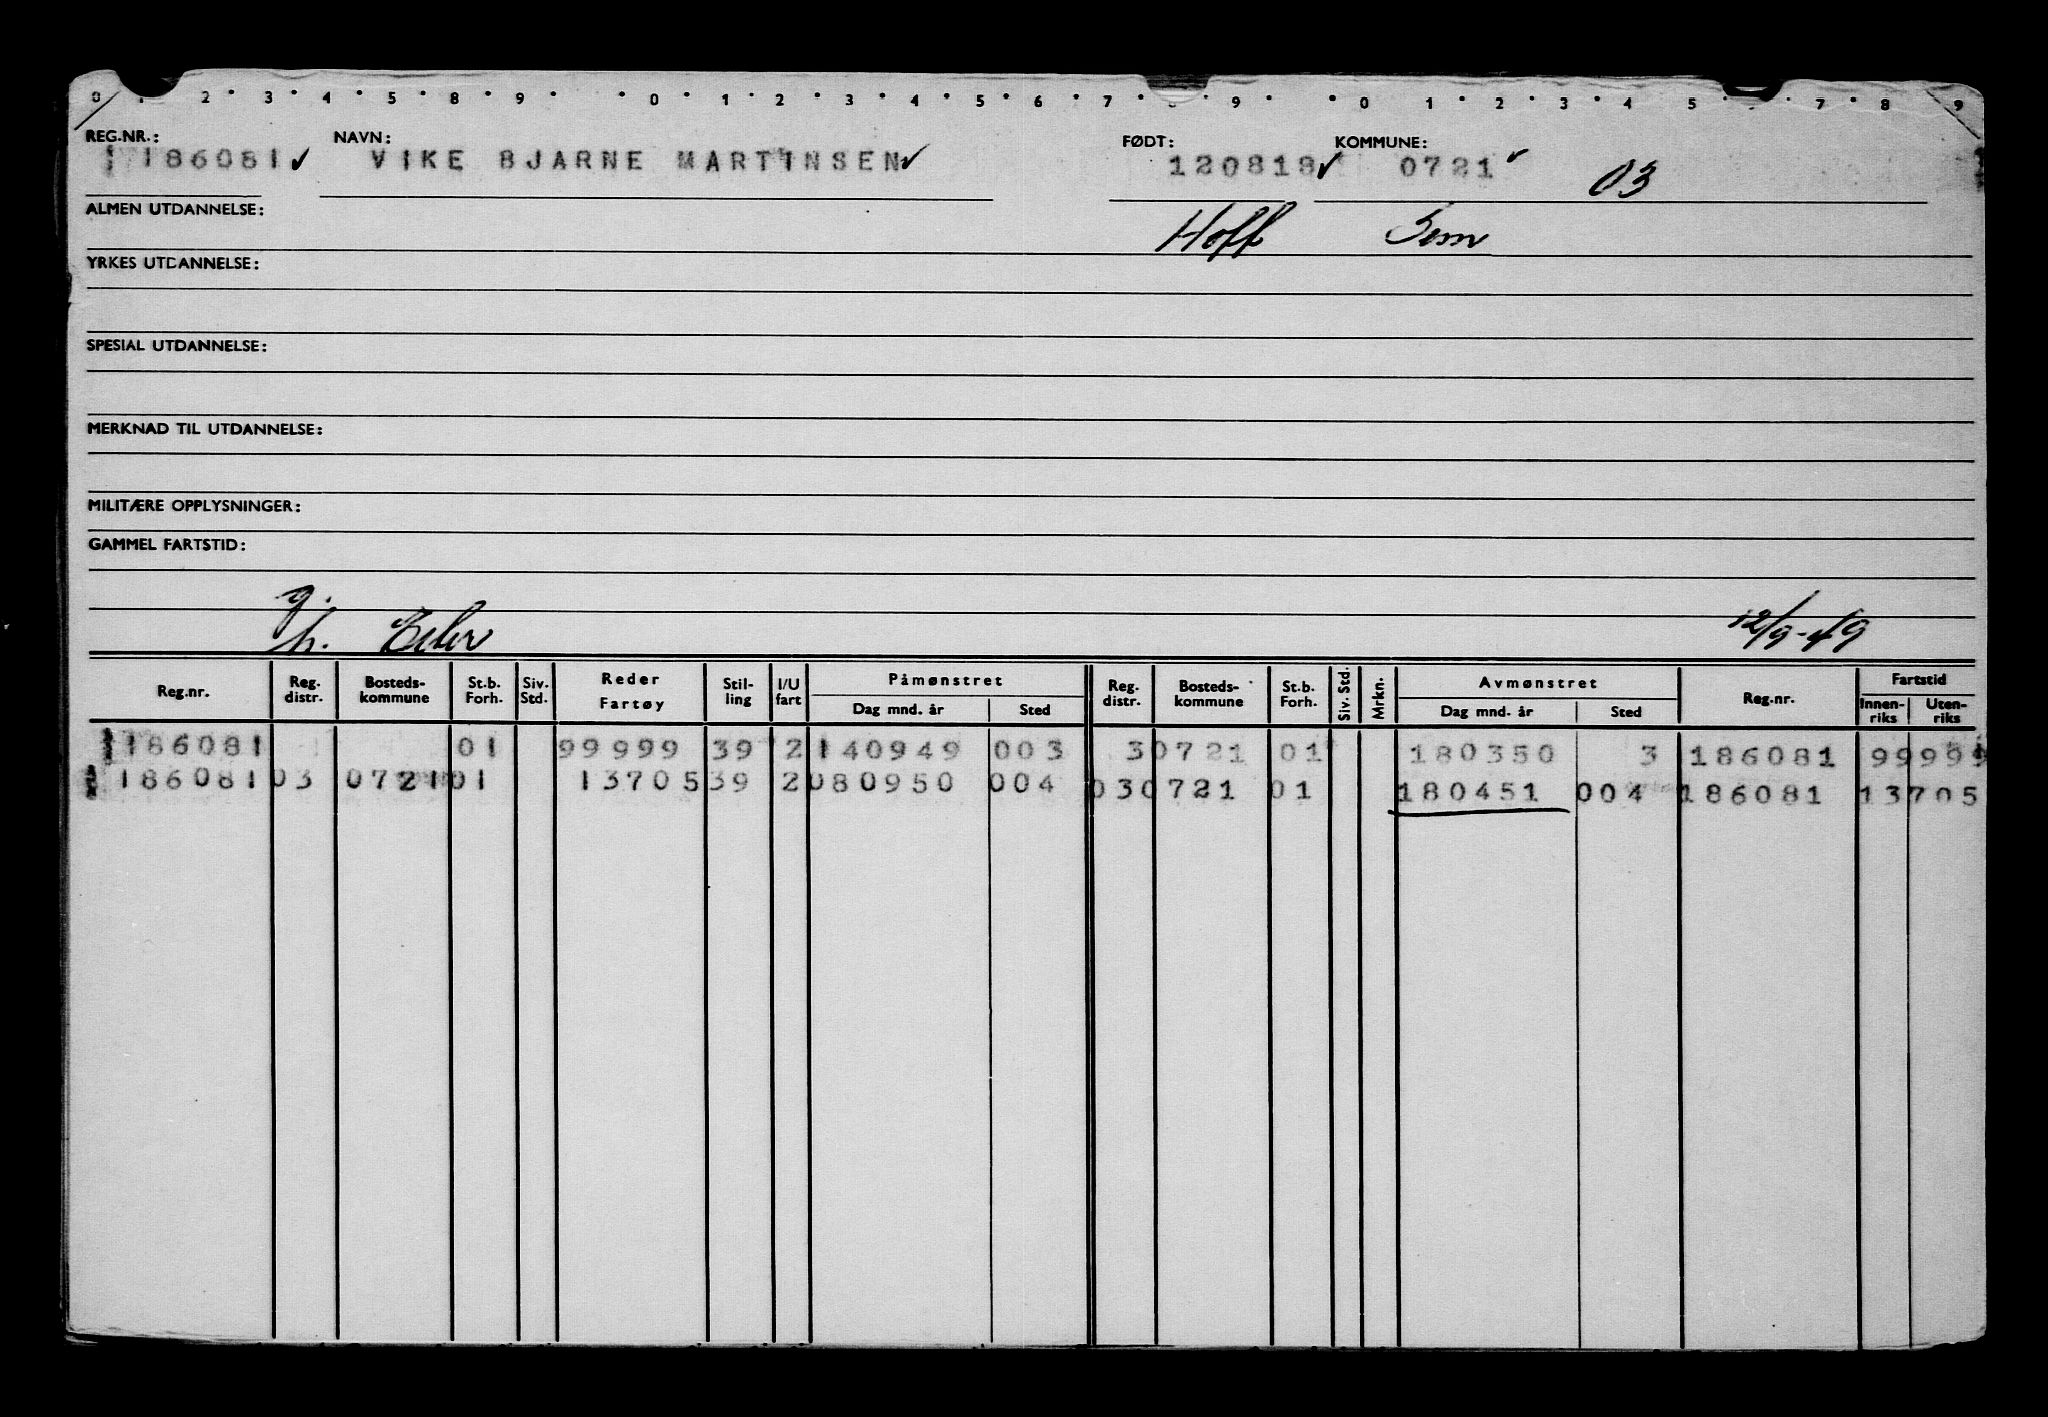 0 1 2 3 4 5 8 9 0 1 2 3 4 5 6 7 9 0 1 2 3 4 5 7 8 9
REG.NR.: NAVN: FØDT: KOMMUNE:
186081 ✓ VIKE BJARNE MARTINSEN ✓ 120818 ✓ 0721 ✓ 03
ALMEN UTDANNELSE: Hoff Sem
YRKES UTDANNELSE:
SPESIAL UTDANNELSE:
MERKNAD TIL UTDANNELSE:
MILITÆRE OPPLYSNINGER:
GAMMEL FARTSTID:
g.
h. 12/9-49
Reg.nr. Reg. distr. Bosteds-kommune St.b. Forh. Siv. Std. Reder Fartøy Stil-ling I/U fart Påmønstret Dag mnd. år Sted Reg. distr. Bosteds-kommune St.b. Forh. Siv. Std. Mrkn. Avmønstret Dag mnd. år Sted Reg.nr. Fartstid Innen-riks Uten-riks
186081 01 99999 39 2 140949 003 3 0721 01 180350 3 186081 99999
186081 03 0721 01 13705 39 2 080950 004 03 0721 01 180451 004 186081 13705